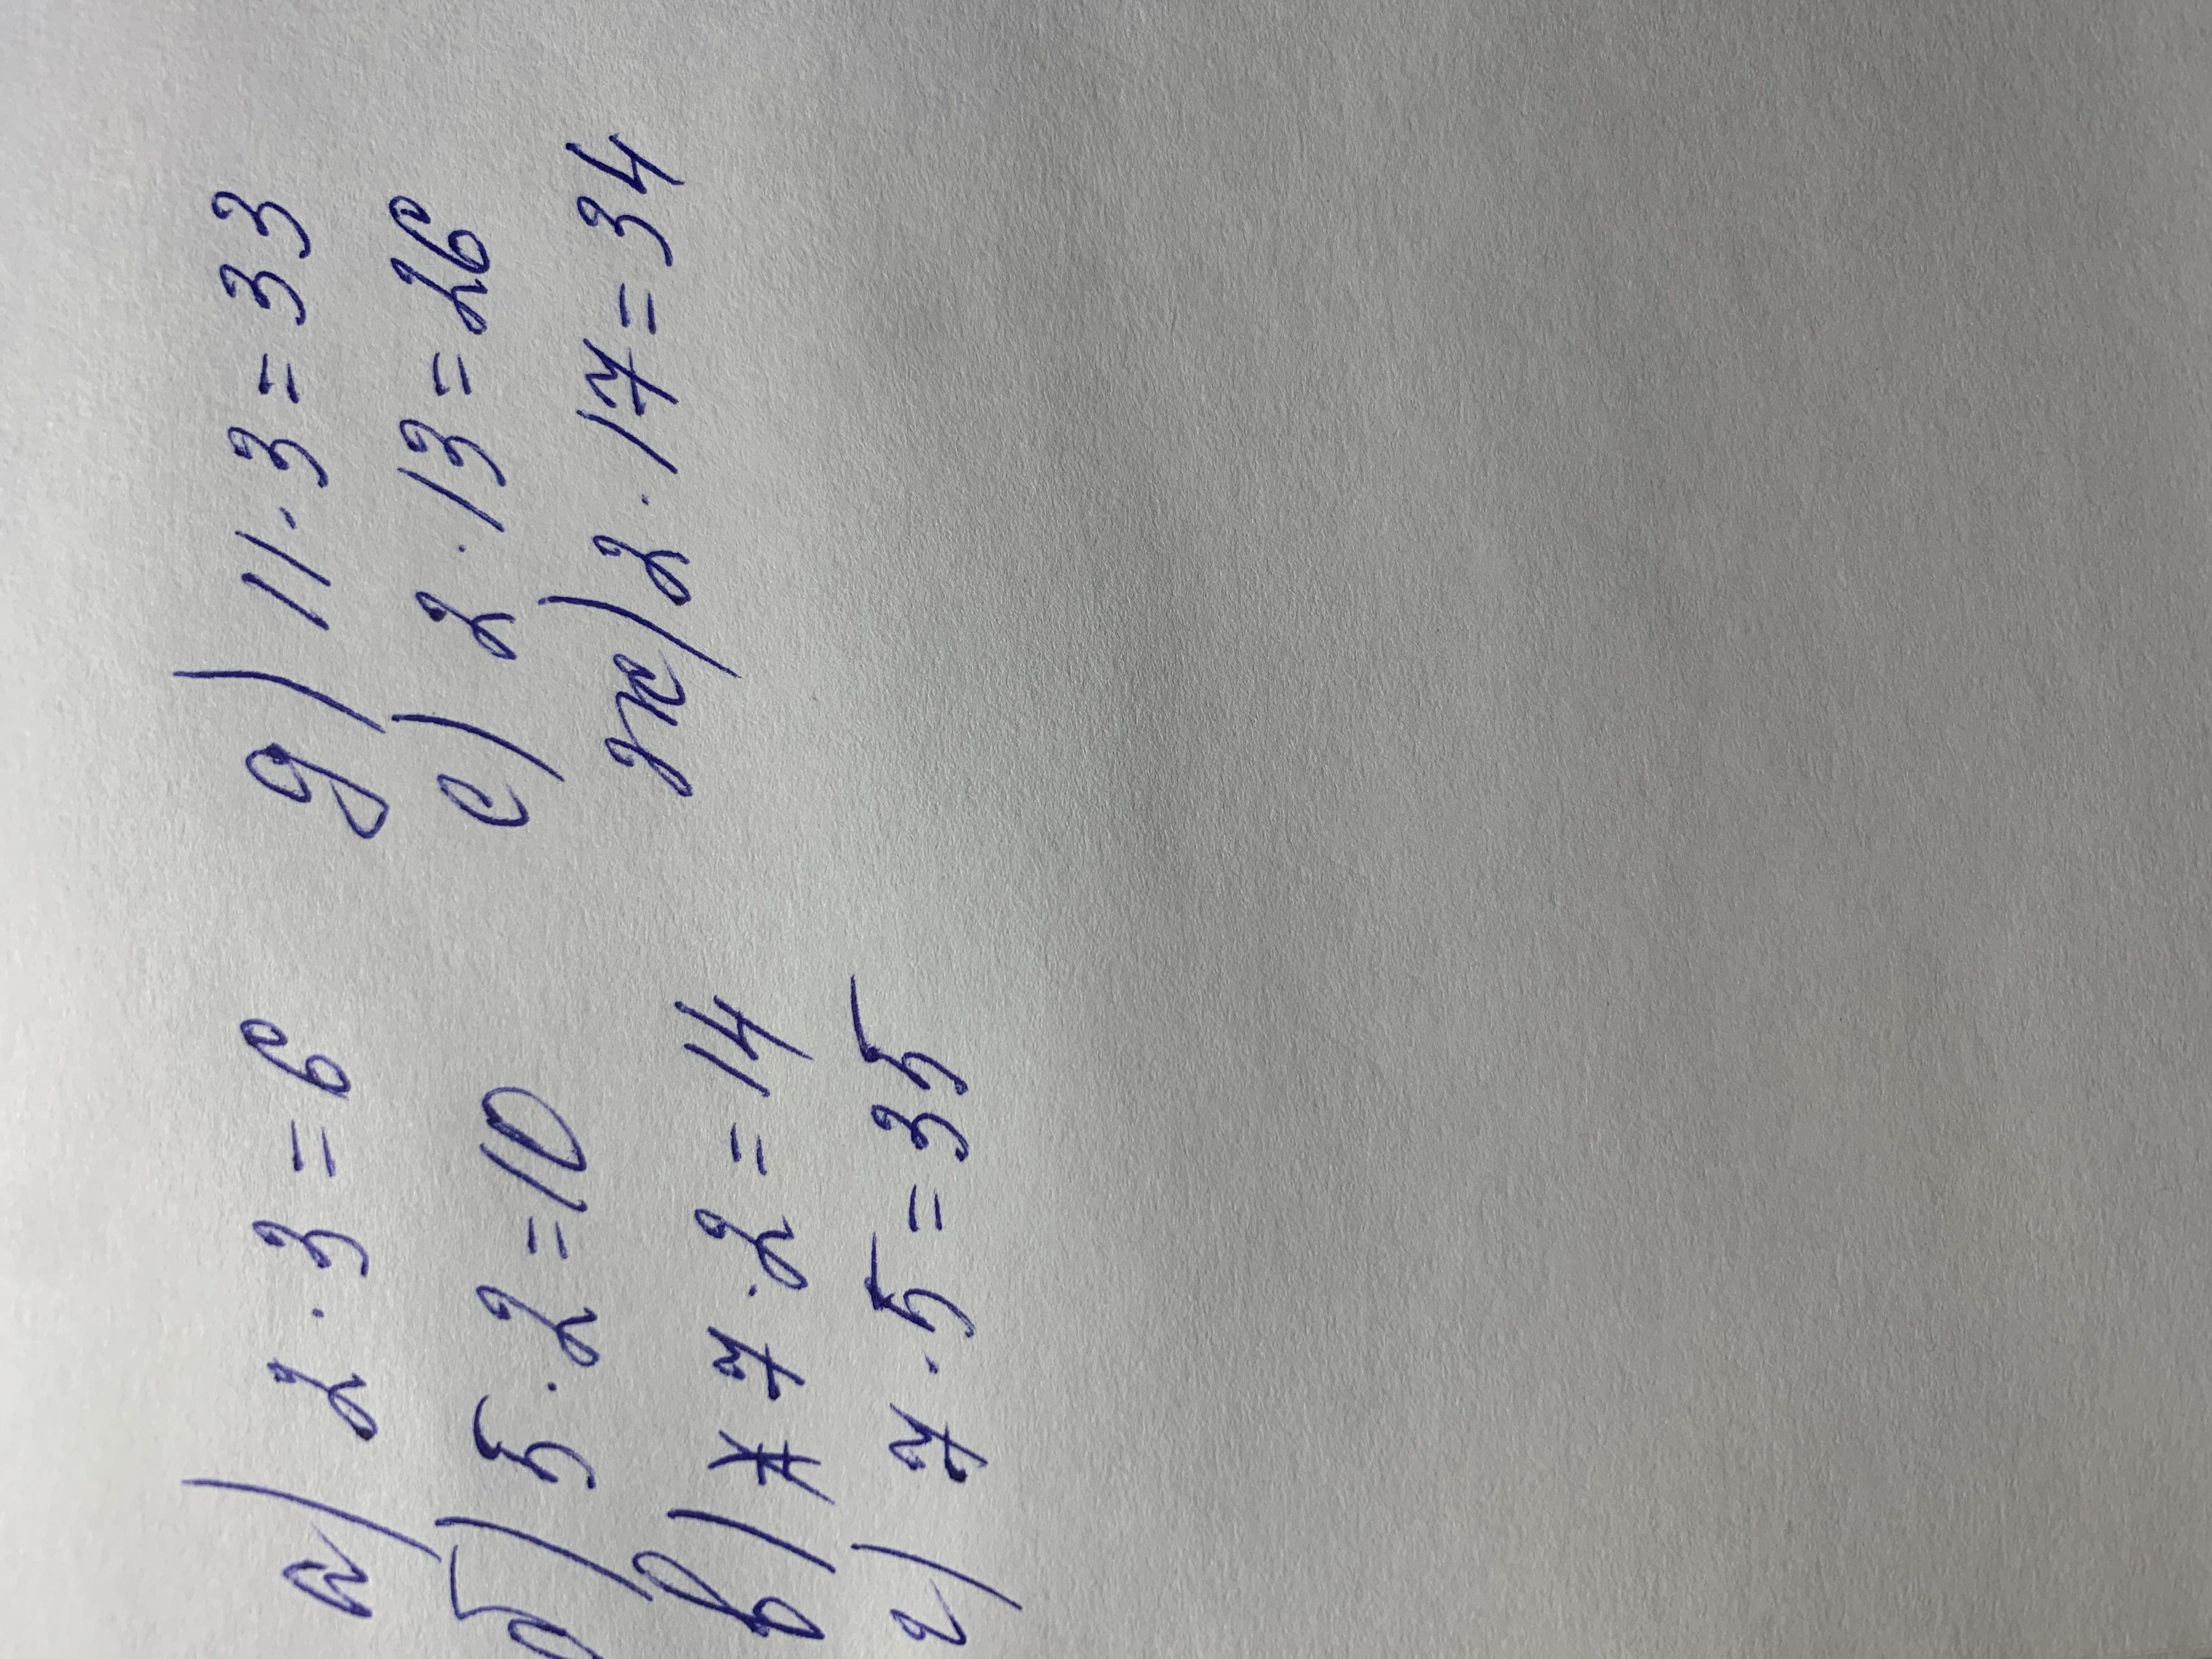 а) 2·3=6
б) 5·2=10
в) 7·2=14
г) 7·5=35
д) 11·3=33
е) 2·13=26
ж) 2·17=34